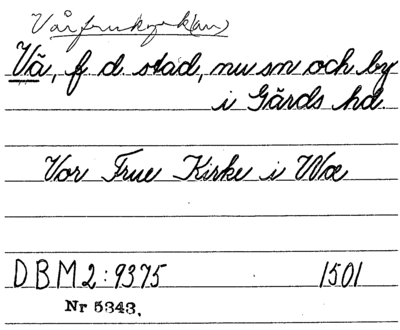 Vårfrukyrk(an)
Vä, f d stad, nu sn och by
i Gärds hd.
Vor Frue Kirke i Wæ
DBM2:9375 1501
Nr 5343.